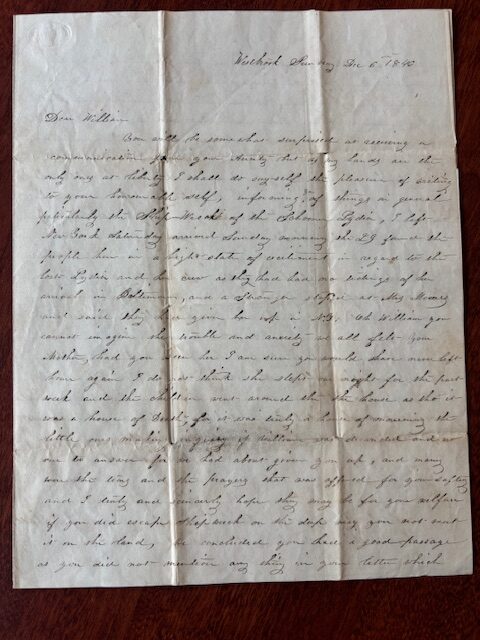 Westbrook Sunday Dec 6th 1840
Dear William
You will be somewhat surprised at receiving a
communication from your Aunty but as my hands are the
only ones at liberty I shall do myself the pleasure of writing
to your honourable self, informing you of things in general
peticularly the Ship Wreck of the Schooner Lydia, I left
New York Saturday arrived Sunday morning the 29 found the
people here in a high state of excitement in regard to the
lost Lydia and her crew as they had had no tidings of her
arrival in Baltimore, and a Stranger stoped at Mrs
and said they had given her up in N.Y. Oh William you
cannot imagin the trouble and anxiety we all felt your
Mother, had you seen her I am sure you would have never left
home again I do not think she slept one night for the past
week and the children went around the house as tho it
was a house of Death for it was truly a house of mourning the
little ones making inquiry if William was drownded and no
one to answer for we had about given you up, and many
were the tears and the prayers that was offered for your safety
and I truly and sincerely hope they may be for your welfare
if you did escape Shipwreck on the deep may you not meet
it on the land, we concluded you had a good passage
as you did not mention any thing in your letter which